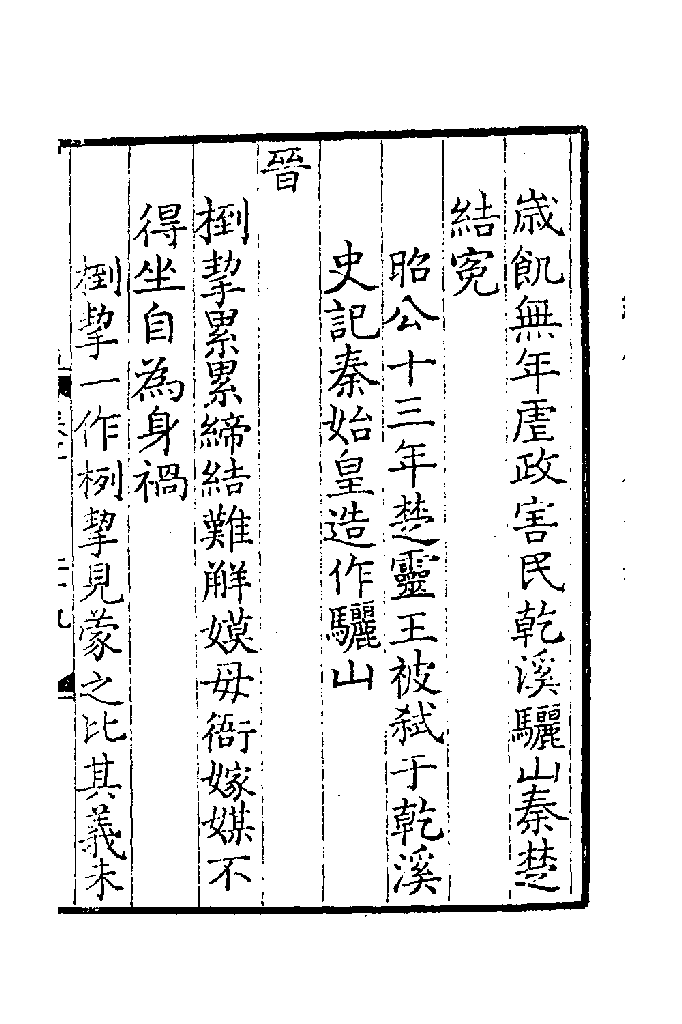 歲飢無年虐政害民乾溪驪山秦楚
結寃
昭公十三年楚靈王被弑于乾溪
史記秦始皇造作驪山
晉
椡挈累累締結難解嫫毋衙嫁媒不
得坐自為身禍
椡挈一作栵挈見蒙之比其義未